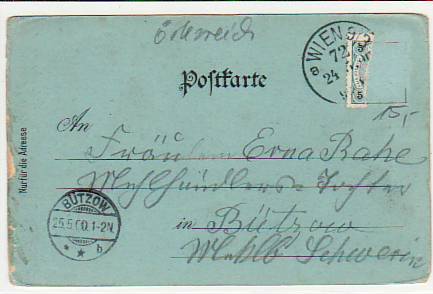 Österreich
WIEN 9/3
72
24
5
5
Postkarte
15,-
An
Fräulein Erna Rahe
Mehlhändlers-Tochter
in Bützow
Meklb Schwerin
Nur für die Adresse
BÜTZOW
25.5.00.1-2N.
* * b